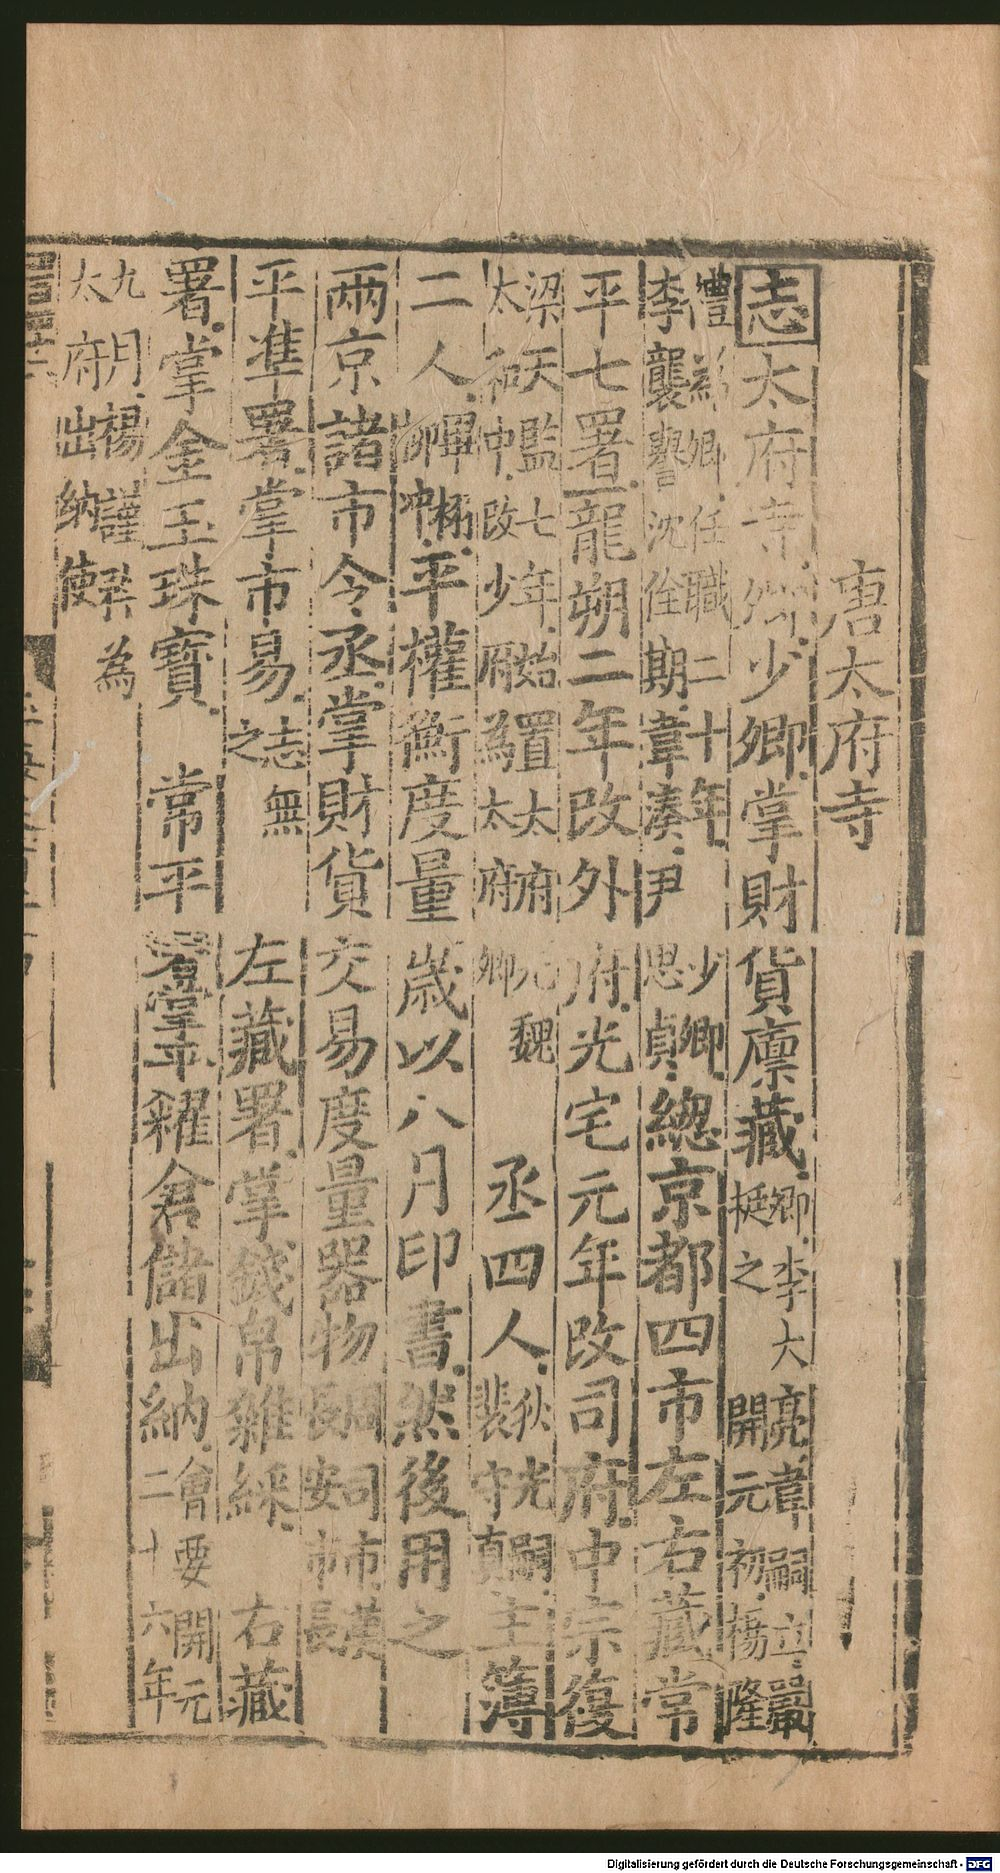 唐太府寺
志太府寺卿少卿掌財貨廪藏卿李大亮韋嗣立嚴
挺之開元初楊隆
禮為卿任職二十年少卿
李襲譽沈佺期韋湊尹思貞總京都四市左右藏常
平七署龍朔二年改外府光宅元年改司府中宗復
梁天監七年始置太府元魏
太和中改少府為太府卿丞四人狄光嗣
裴守真主簿
二人平權衡度量歲以八月印書然後用之
兩京諸市令丞掌財貨交易度量器物周司市漢
長安市長
平準署掌市易志無
之左藏署掌錢帛雜綵右藏
署掌金玉珠寶常平署掌平糴倉儲出納會要開元
二十六年
九月楊謹矜為
太府出納使
Digitalisierung gefördert durch die Deutsche Forschungsgemeinschaft - DFG